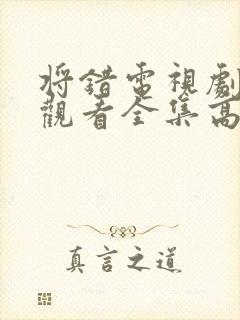 将錯電視劇
觀看全集高
真言之道